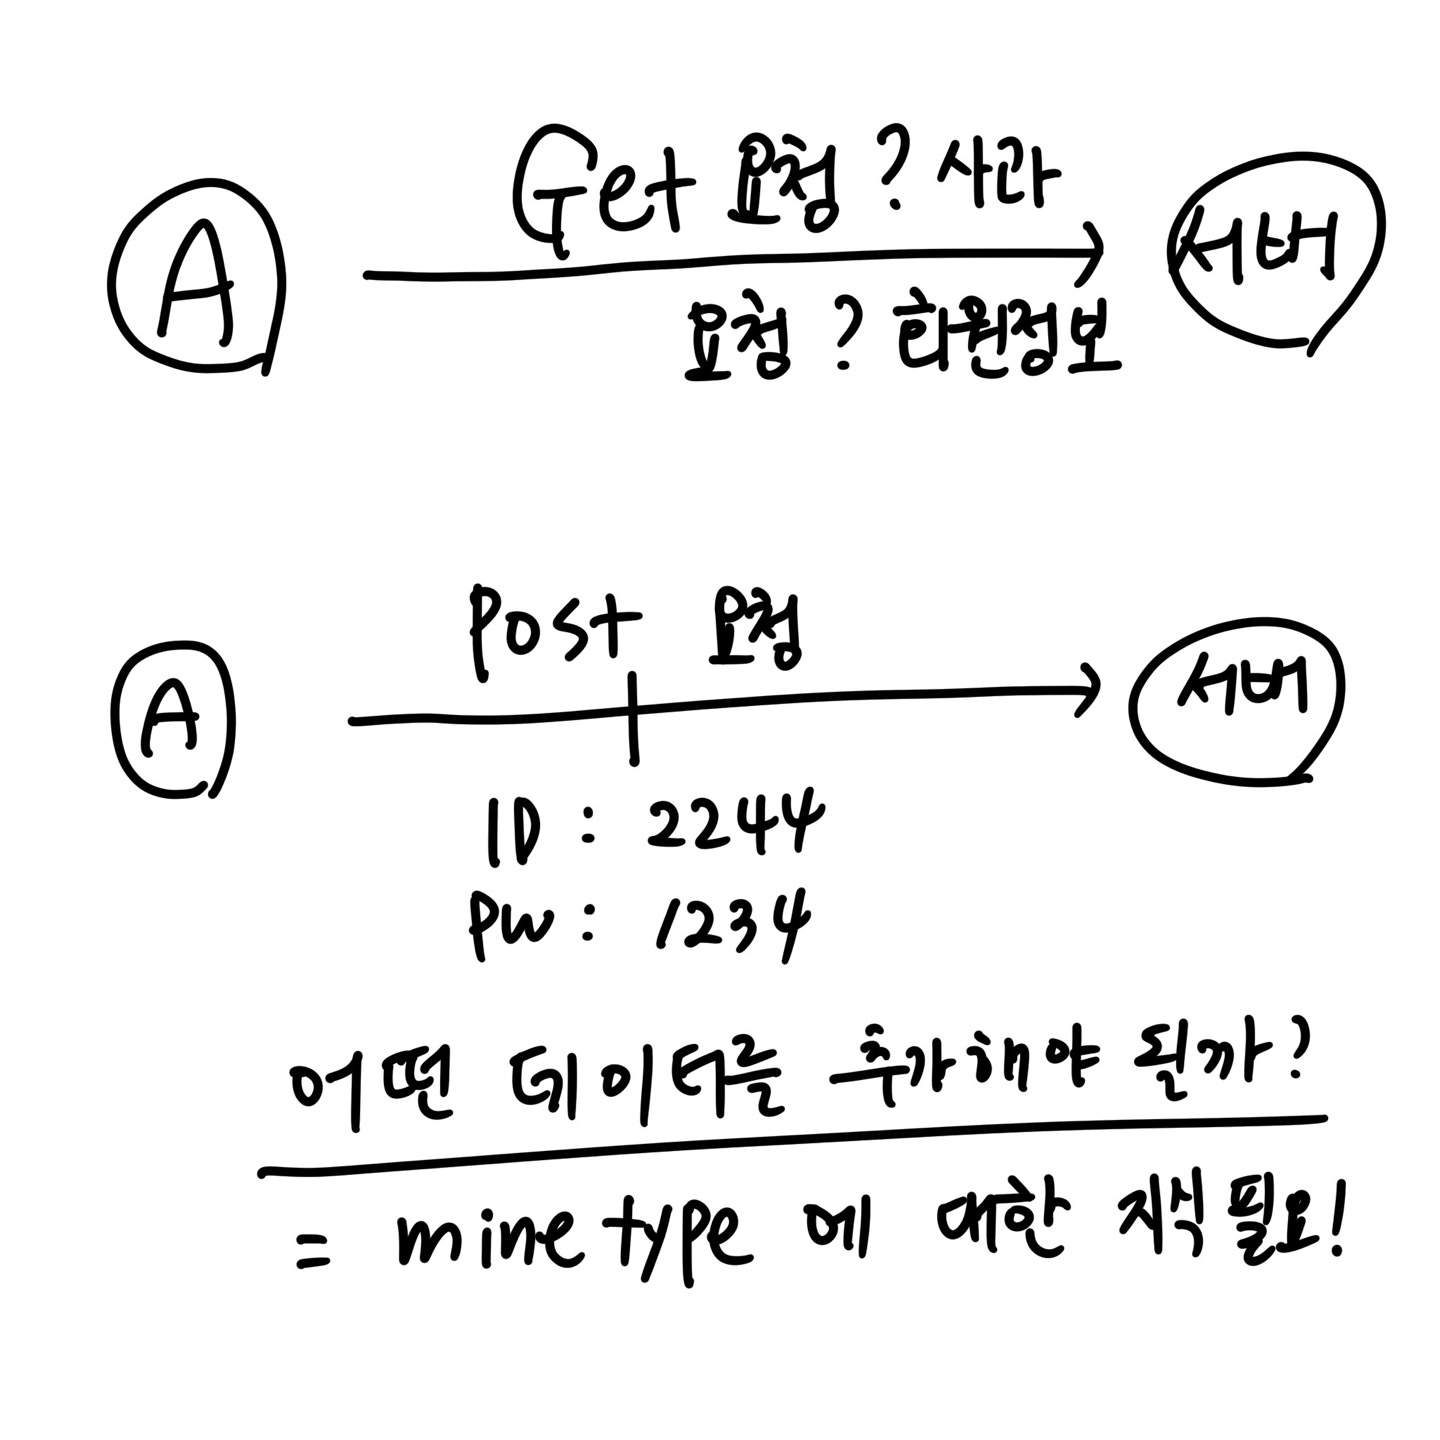 A
Get 요청 ? 사과
서버
요청 ? 회원정보
Post 요청
A
서버
ID : 2244
PW : 1234
어떤 데이터를 추가해야 될까?
= mine type 에 대한 지식 필요!